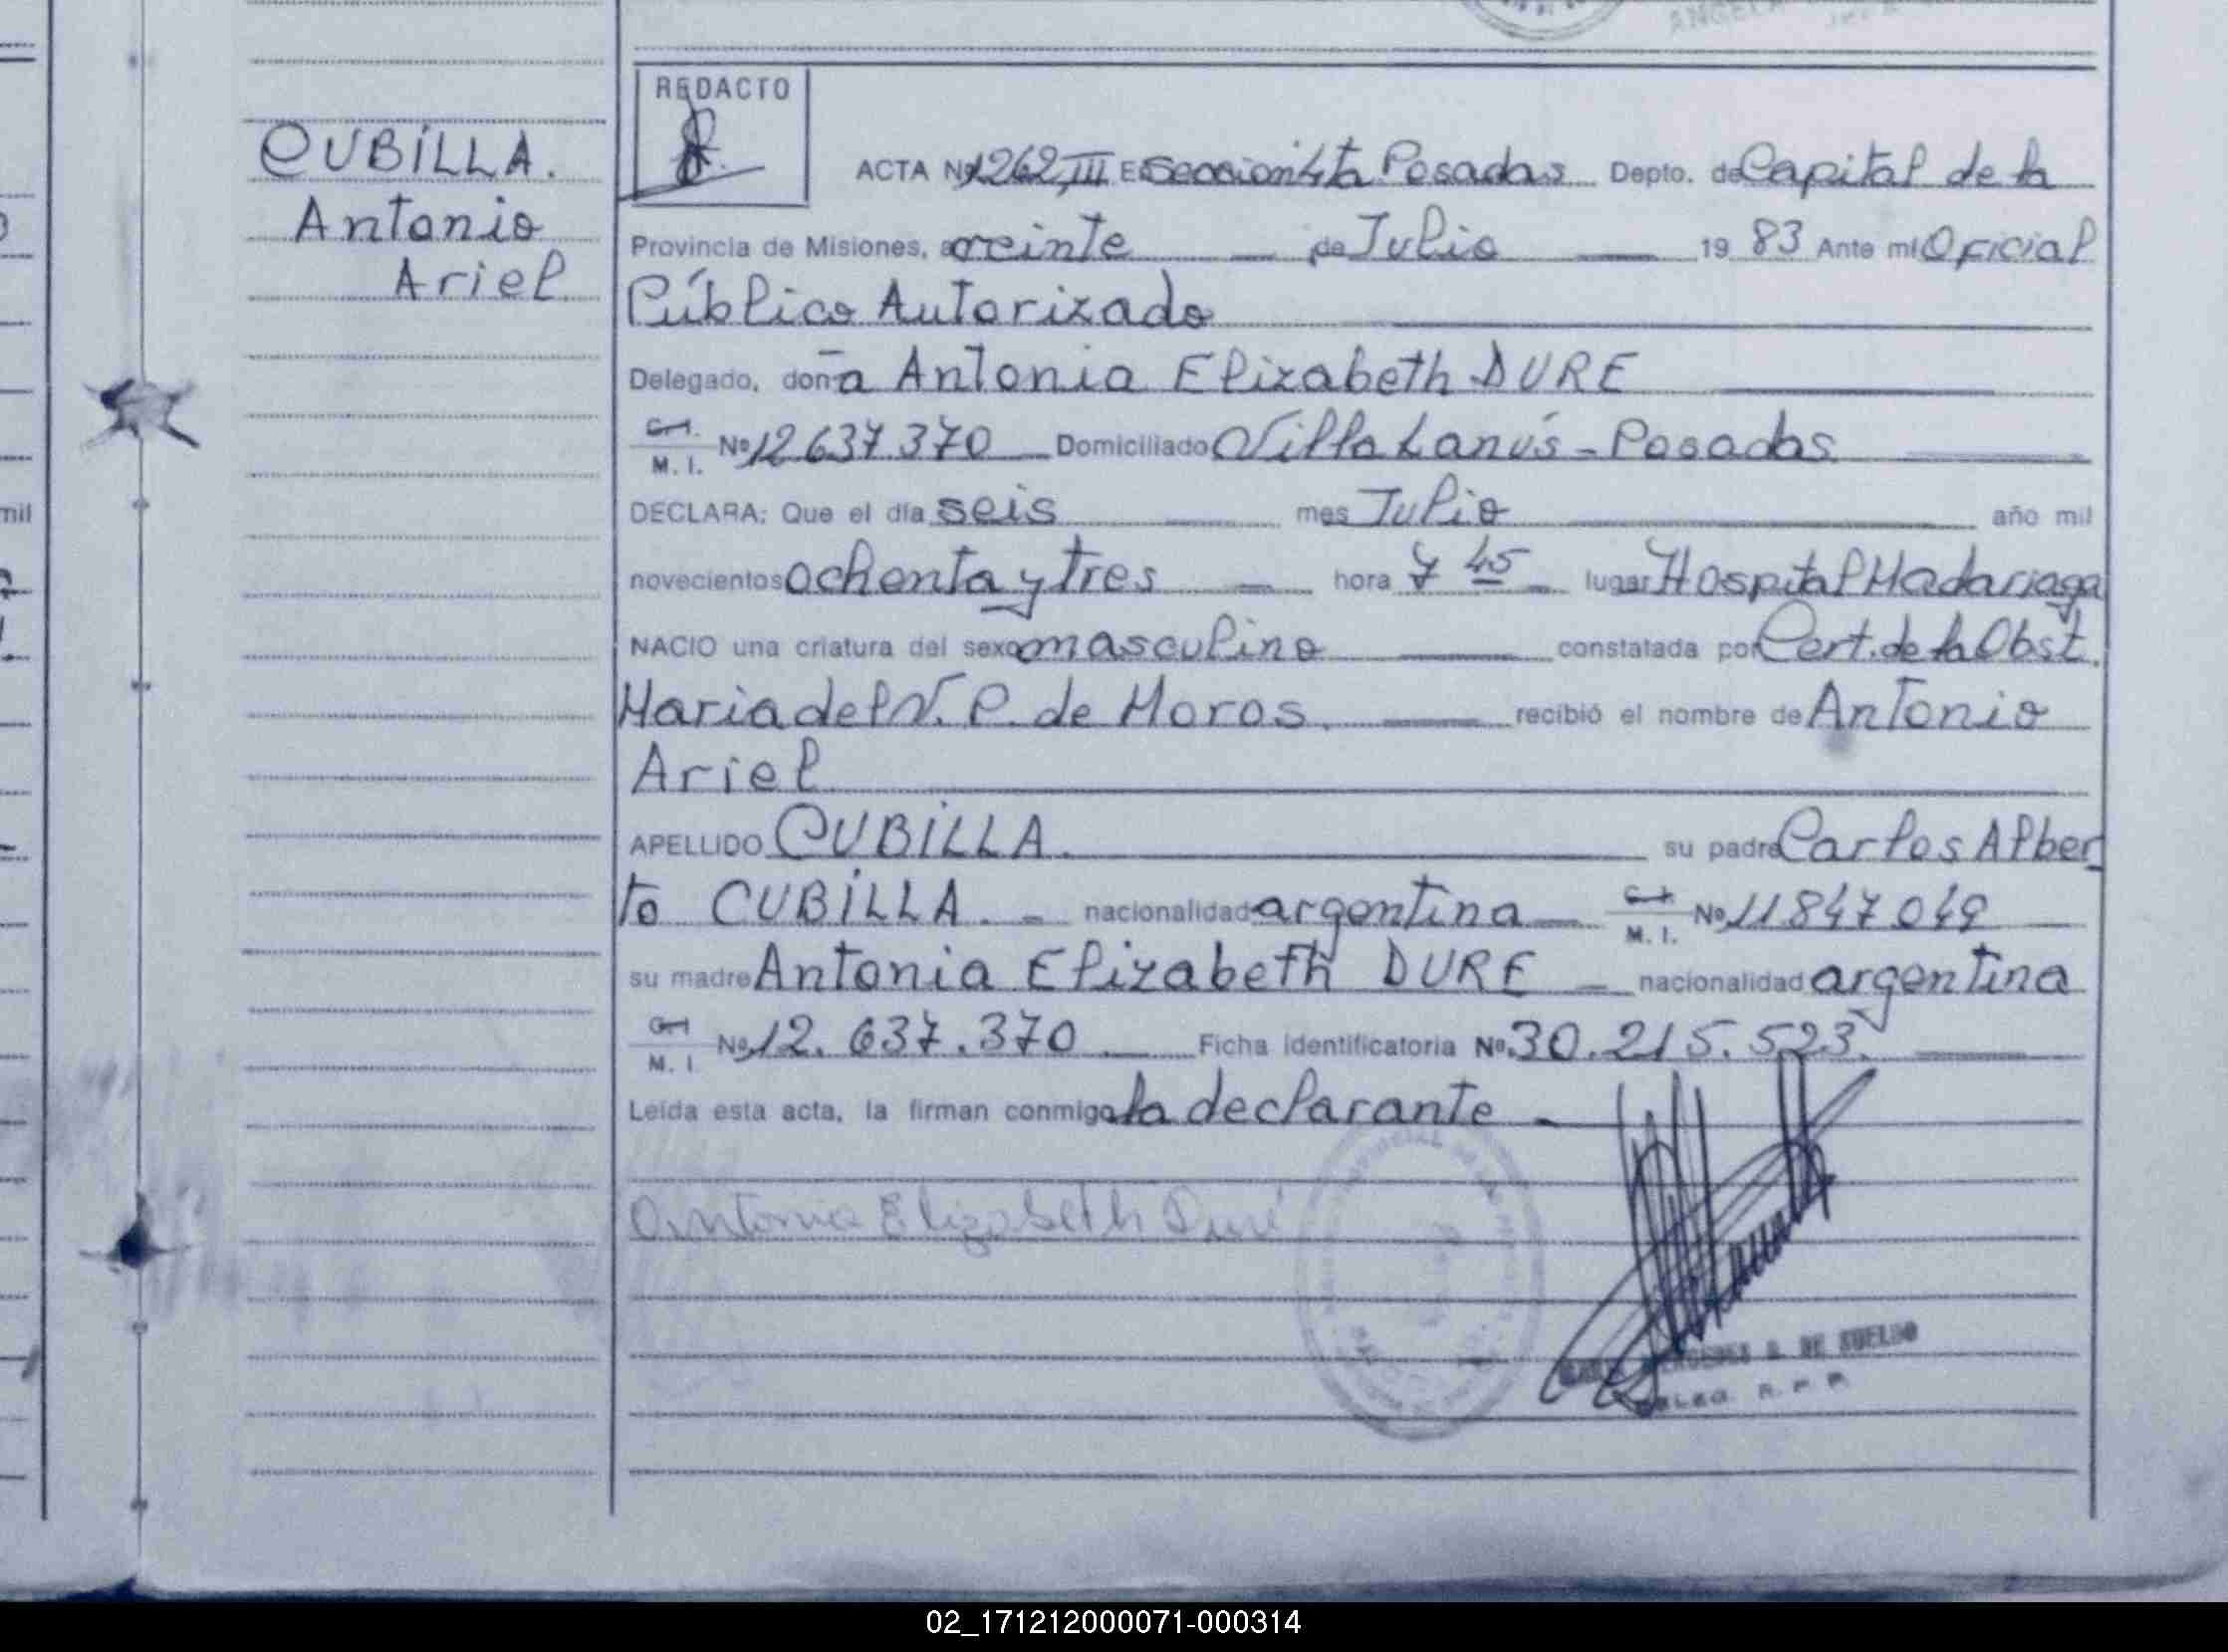 CUBILLA.
Antonio
Ariel
REDACTO
ACTA Nº 1262, III En Sección 4ta Posadas Depto. de Capital de la
Provincia de Misiones, a veinte de Julio 1983 Ante mí Oficial
Público Autorizado
Delegado, doña Antonia Elizabeth DURE
C.I.
M. I. Nº 12.637.370 Domiciliado Villa Lanús - Posadas
DECLARA: Que el día seis mes Julio año mil
novecientos ochenta y tres hora 7 45 lugar Hospital Madariaga
NACIO una criatura del sexo masculino constatada por Cert. de la Obst.
Maria del V. P. de Moros. recibió el nombre de Antonio
Ariel
APELLIDO CUBILLA. su padre Carlos Alber
to CUBILLA. - nacionalidad argentina C.I.
M. I. Nº 11847049
su madre Antonia Elizabeth DURE - nacionalidad argentina
C.I.
M. I. Nº 12.637.370 Ficha identificatoria Nº 30.215.523.
Leída esta acta, la firman conmigo la declarante
Antonia Elizabeth Duré
DE SUELDO
R. P. P.
mil
02_171212000071-000314